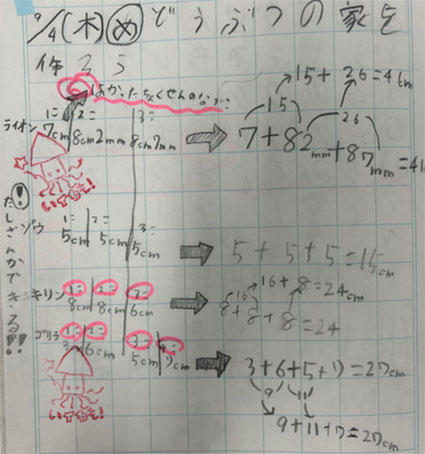 9/4(木)め どうぶつの家を
作ろう
はかったちょくせんのながさ
15+26=41cm
15
26
ライオン
1= 7cm
2= 8cm2mm
3= 8cm7mm
7+82mm+87mm=41
ゾウ
1= 5cm
2= 5cm
3= 5cm
5+5+5=15cm
キリン
1= 8cm
2= 8cm
3= 6cm
16+8=24cm
16
8+8+8=24
ゴリラ
1= 3
2= 6cm
3= 5cm
4= 7cm
3+6+5+7=27cm
9
11
9+11+7=27cm
!たしざんができる!!